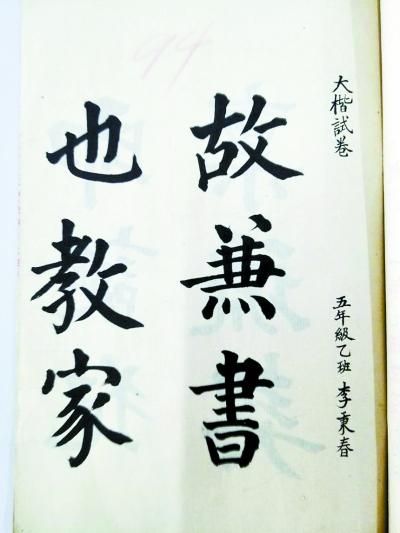 94
大楷試卷
五年級乙班 李秉春
故兼書
也教家